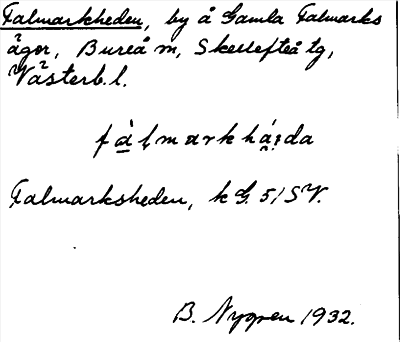 Falmarkheden, by å Gamla Falmarks
ägor, Bureå sn, Skellefteå tg,
Västerb. l.
fàlmarkhái̯da
Falmarksheden, k G. 51 SV.
B. Nygren 1932.